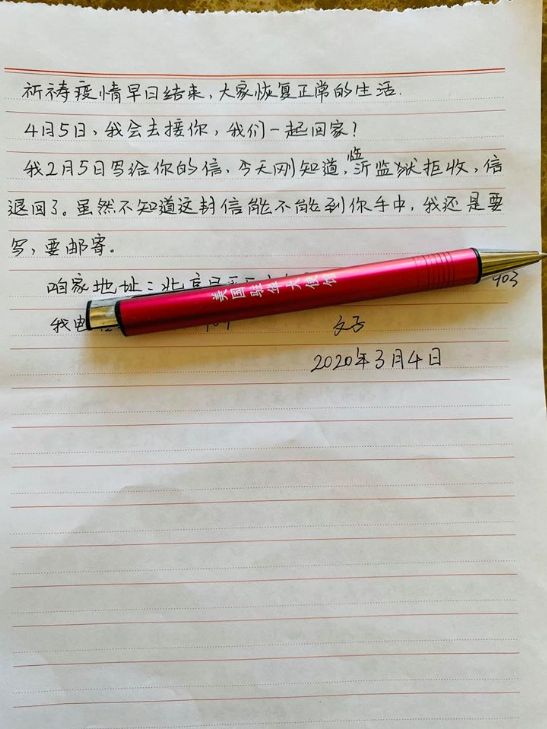 祈祷疫情早日结束,大家恢复正常的生活.
4月5日,我会去接你,我们一起回家!
我2月5日写给你的信,今天刚知道,临沂监狱拒收,信
退回了。虽然不知道这封信能不能到你手中,我还是要
写,要邮寄。
咱家地址:北京 403
美国驻华大使馆
我电
2020年3月4日